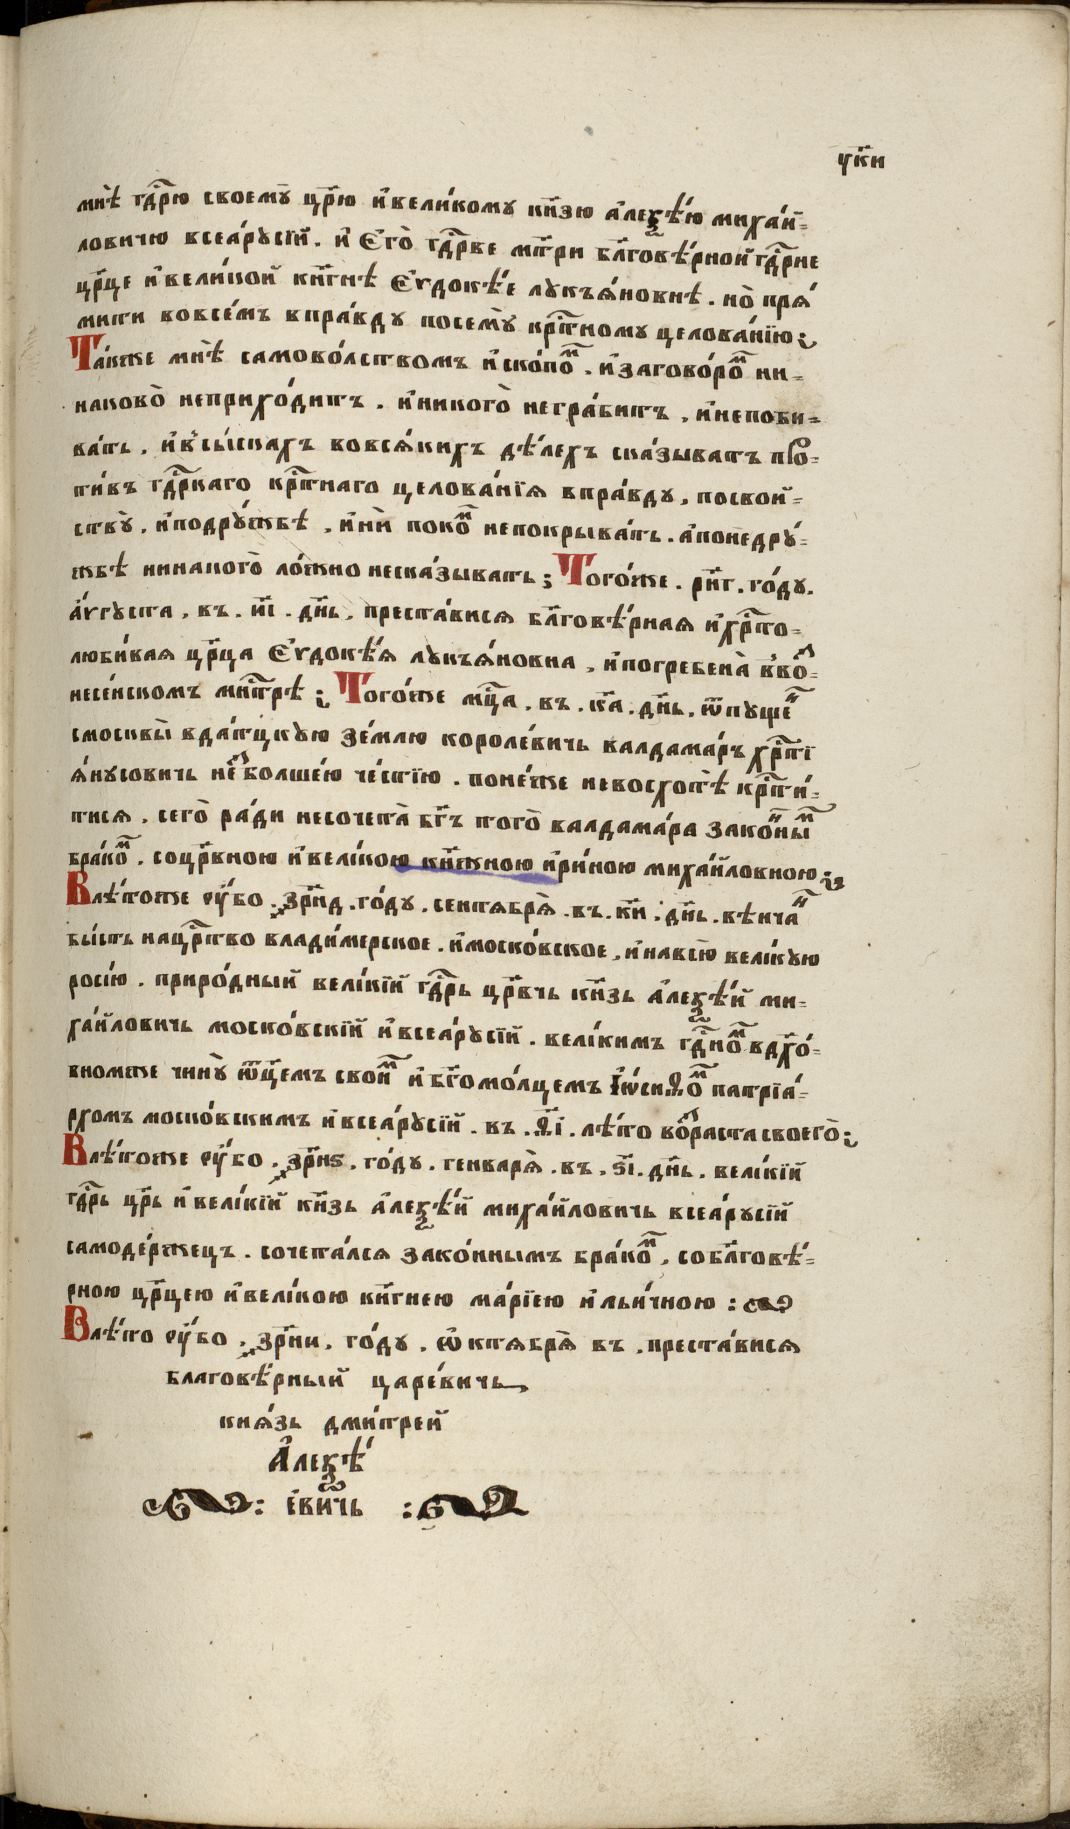 ѱк҃и
мнѣ̀ гдⷭ҇рю своемꙋ̀ цр҃ю и҆вели́кому кн҃зю а҆леѯѣ́ю миха́й=
ловичю всеа́рꙋсїй . и҆ Є҆го̀ гдⷭ҇рве мт҃ри бл҃говѣ́рной гдⷭ҇рне
цр҃це и҆вели́кой кн҃гнѣ Є҆ѵдокѣ́е лукъѧ́новнѣ . но̀ прѧ́
мити вовсе́мъ впра́вду посемꙋ̀ крⷭ҇тному целова́нїю ;
Та́кѫе мнѣ̀ самово́лствомъ и҆ско́поⷨ . и҆загово́роⷨ ни=
каково̀ неприхо́дить . и҆никого̀ негра́бить , и҆непоби=
вать . и҆всы́скахъ вовсѧ́кихъ дѣ́лехъ ска́зывать про=
ти́въ гдⷭ҇рскаго крⷭ҇тнаго целова́нїѧ впра́вду , посвой=
ствꙋ̀ , и҆подрꙋ́жбѣ , и҆нѝ покоⷨ непокрыва́ть . а҆понедрꙋ́=
жбѣ никакого̀ ло́жно неска́зывать ; Того́же . рн҃г . го́ду .
а҆́ѵгуста , въ . и҃і . дн҃ь , преста́висѧ бл҃говѣ́рнаѧ и҆хрⷭ҇то=
люби́ваѧ цр҃ца Є҆ѵдокѣ́ѧ лукъѧ́новна , и҆погребена̀ в҆воⷥ=
несе́нскомъ мнⷭ҇трѣ ; Того́же мц҃а , въ . к҃а . дн҃ь , ѿпущеⷩ
смосквы̀ вда́тцкую зе́млю короле́вичь валдама́ръ хрⷭ҇тї
ѧ́нусовичь неⷥ болше́ю че́стїю . поне́же невосхотѣ̀ крⷭ҇ти́=
тисѧ . сего̀ ра́ди несочета̀ бг҃ъ того̀ валдама́ра зако́ннымⷨ
бра́коⷨ . соцр҃вною и҆вели́кою кн҃жною и҆ри́ною миха́йловною :
Влѣ́тоже ѹ҆́бо . ҂зр҃нд . го́ду . сентѧбрѧ̀ . въ . к҃и . дн҃ь . вѣнчаⷩ
бы́сть нацрⷭ҇тво влади́мерское . и҆моско́вское , и҆навсю̀ вели́кую
росі́ю . приро́дный вели́кїй гдⷭ҇рь цр҃вчь кн҃зь а҆леѯѣ́й ми=
ха́йловичь моско́вскїй и҆всеа́русїй . вели́кимъ гдⷭ҇номⷨ вдх҃о́=
вномже чинꙋ̀ ѿц҃емъ своиⷨ и҆бг҃омо́лцемъ І҆ѡ́сиѳоⷨ патрїа́=
рхомъ моско́вскимъ и҆всеа́русїй . въ . ѳ҃і . лѣ́то воⷥраста своего̀ ;
Влѣ́тоже ѹ҆́бо . ҂зр҃нѕ . го́ду . генварѧ̀ . въ . ѕ҃і . дн҃ь . вели́кїй
гдⷭ҇рь цр҃ь и҆вели́кїй кн҃зь а҆леѯѣ́й миха́йловичь всеа́русїй
самоде́ржецъ . сочета́лсѧ зако́ннымъ бра́коⷨ , собл҃говѣ́=
рною цр҃цею и҆вели́кою кн҃гнею ма́рїею и҆льи́чною :
Влѣ́то ѹ҆́бо . ҂зр҃ни . го́ду . ѡ҆ктѧбрѧ̀ въ . преста́висѧ
благовѣ́рный царе́вичь
кнѧ́зь дми́трей
А҆леѯѣ́
е҆ви́чь